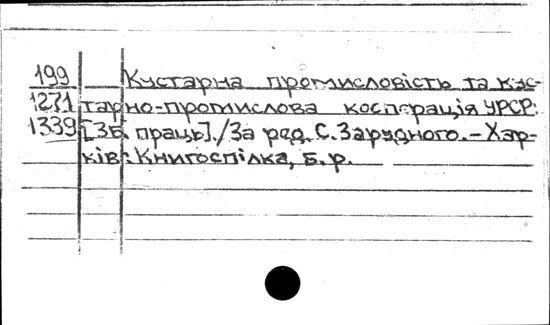 199 Кустарна промисловість та кус-
1271 тарно-промислова кооперація УРСР:
1339 [Зб. праць]./За ред. С. Зарудного. – Хар-
ків: Книгоспілка, б. р.